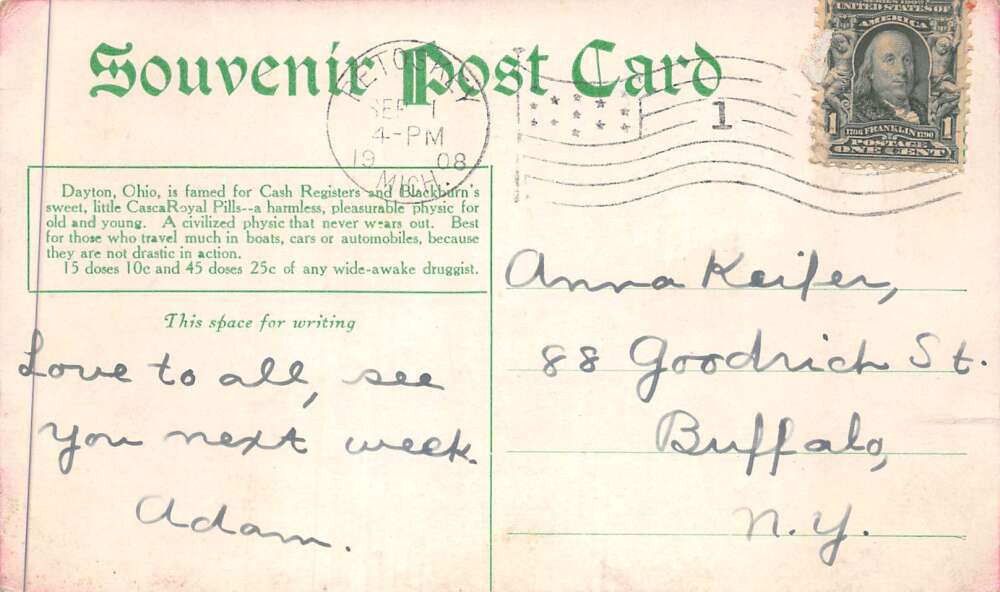 Souvenir Post Card
PETOSKEY
SEP 1
4-PM
19 08
MICH.
1
SERIES 1902
UNITED STATES OF
AMERICA
1 1706 FRANKLIN 1790 1
POSTAGE
ONE CENT
Dayton, Ohio, is famed for Cash Registers and Blackburn's
sweet, little CascaRoyal Pills--a harmless, pleasurable physic for
old and young. A civilized physic that never wears out. Best
for those who travel much in boats, cars or automobiles, because
they are not drastic in action.
15 doses 10c and 45 doses 25c of any wide-awake druggist.
This space for writing
Love to all, see
you next week.
Adam.
Anna Keifer,
88 Goodrich St.
Buffalo,
N.Y.